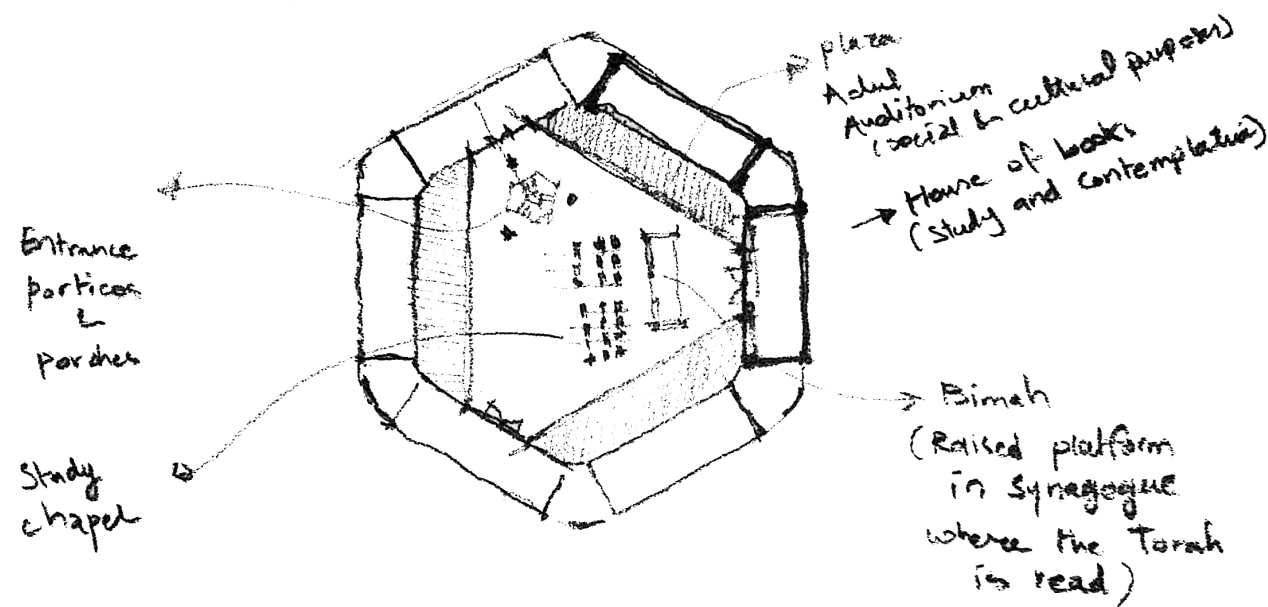 plaza
Auditorium
(social & cultural purposes)
House of books
(study and contemplation)
Entrance
porticos
&
porches
Study
chapel
Bimah
(Raised platform
in synagogue
where the Torah
is read)